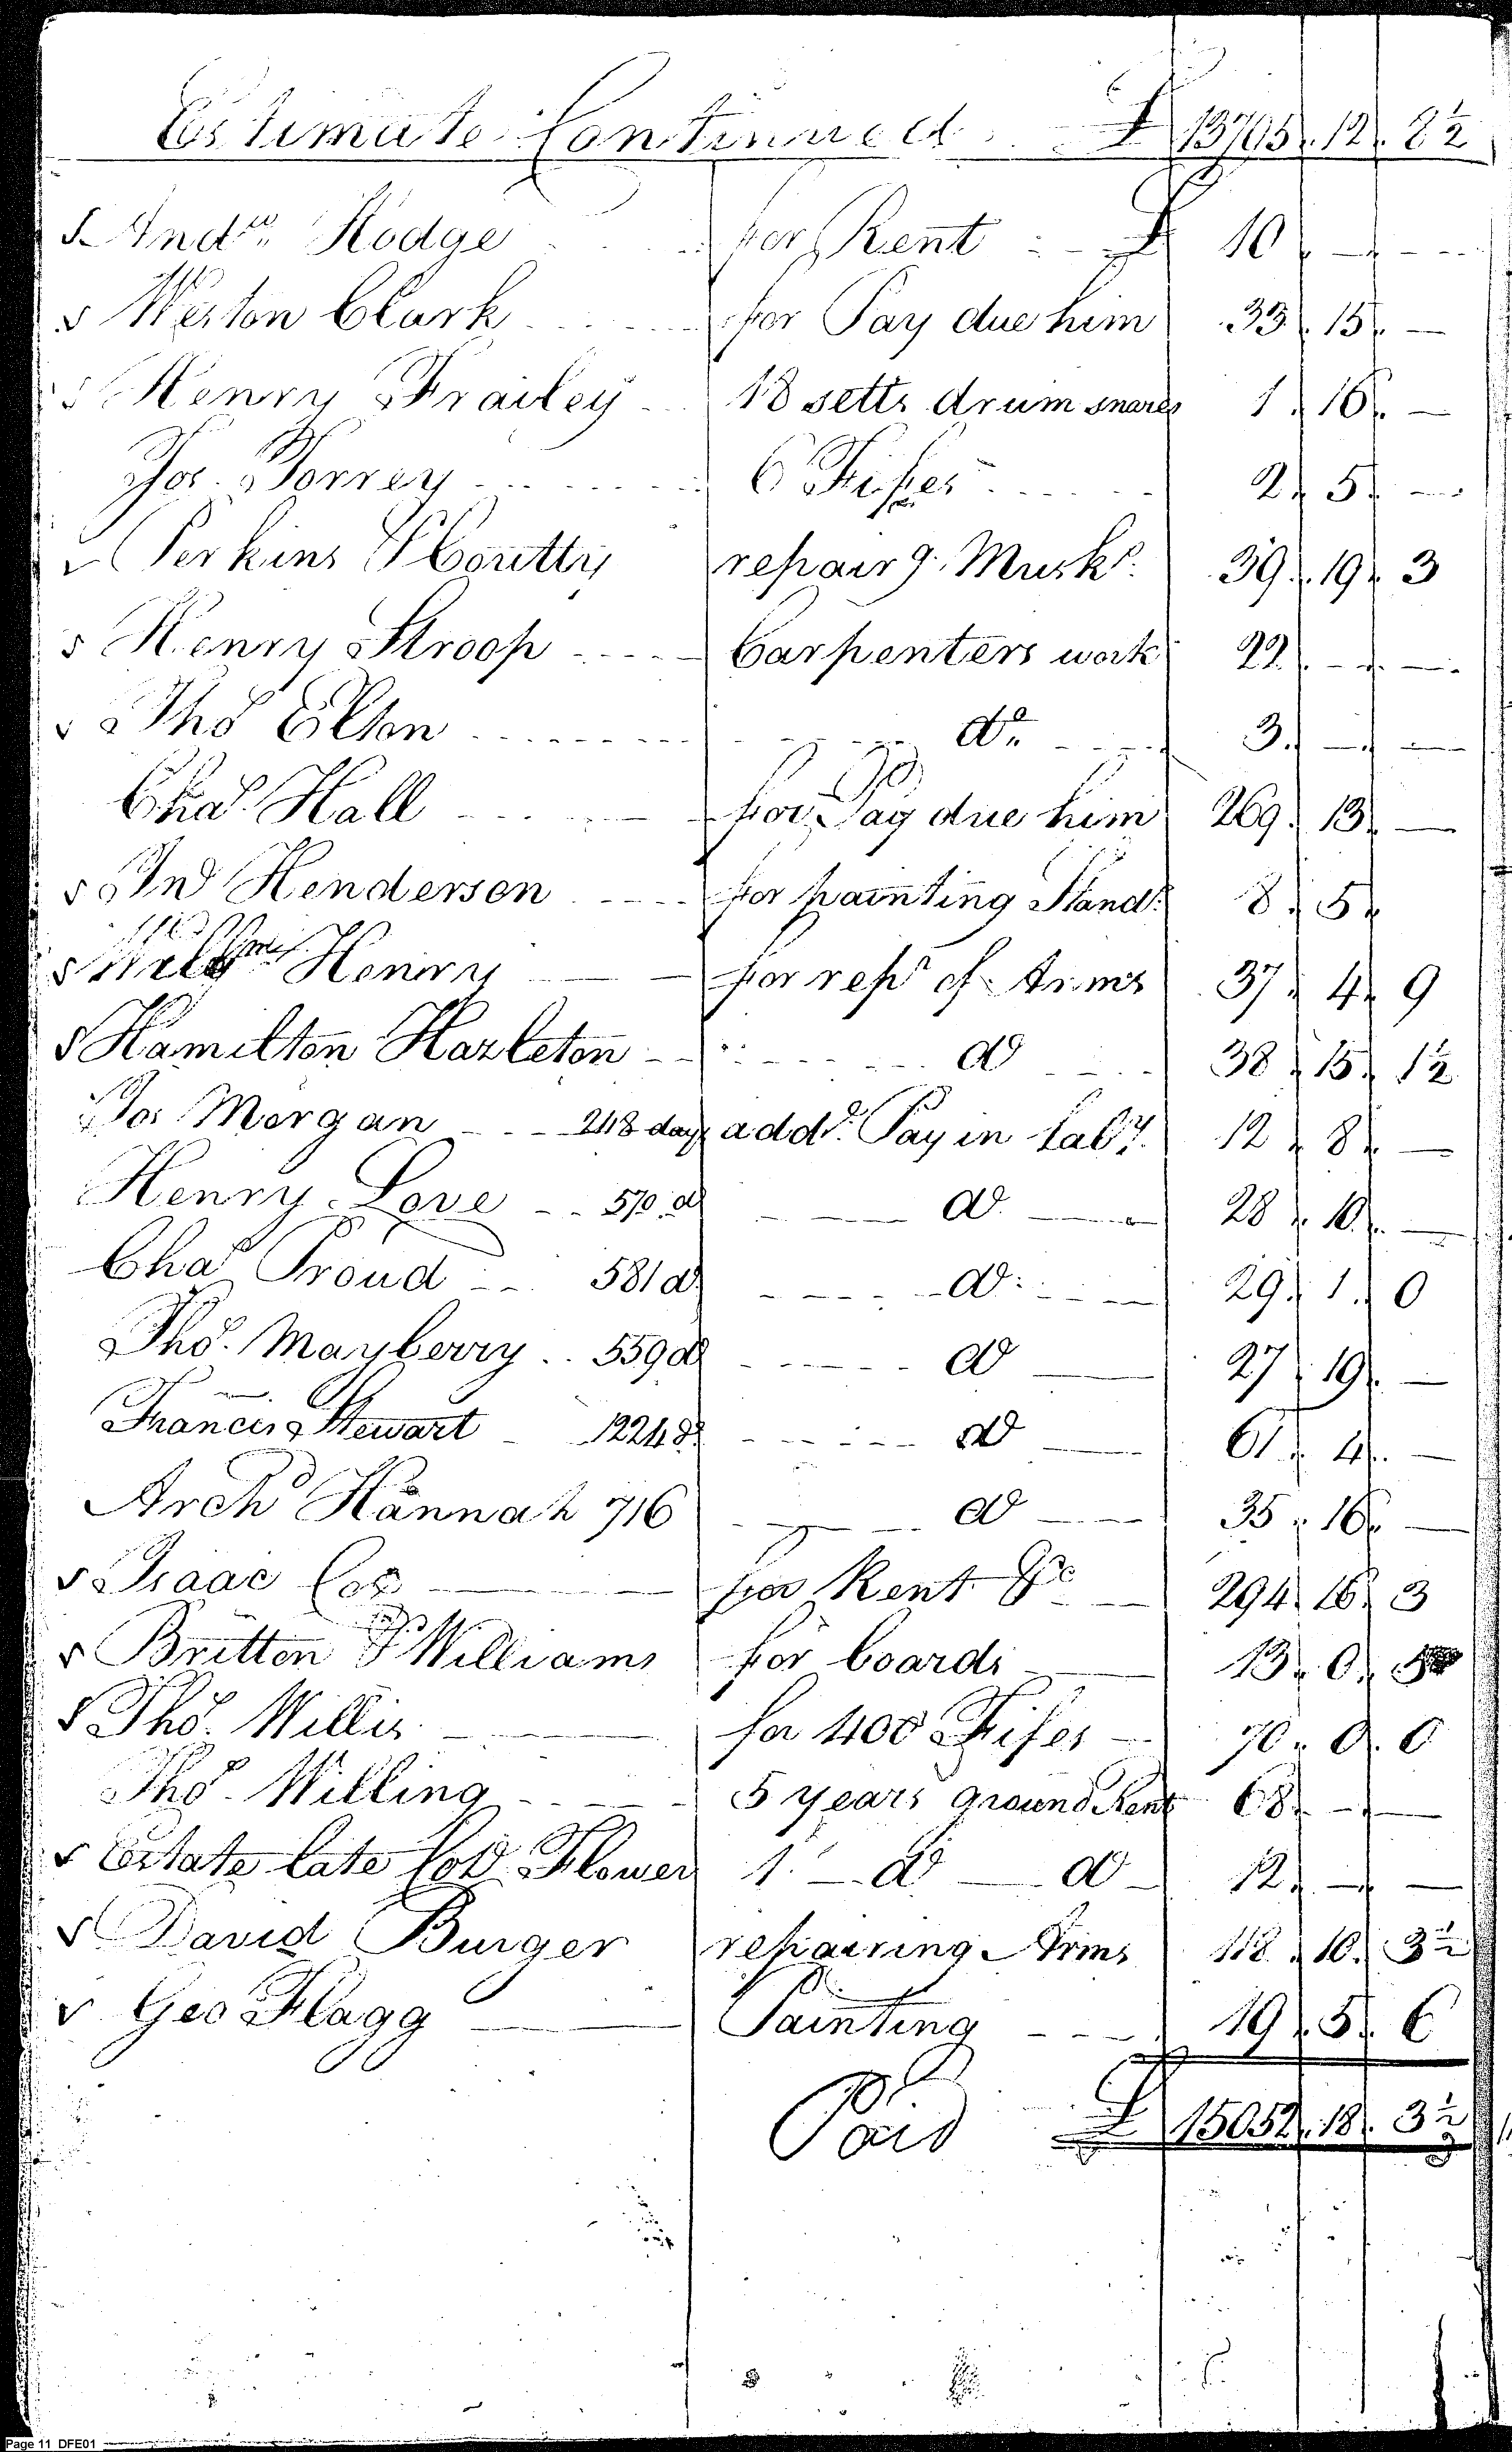 Estimate Continued £ 13705. 12. 8½
Andw. Hodge for Rent £ 10 . — . —
Weston Clark for Pay due him 33. 15. —
Henry Frailey 18 setts drum snares 1. 16. —
Jos. Torrey 6 Fifes 2. 5. —
Perkins & Coutty repairg. Musks. 39. 19. 3
Henry Stroop Carpenters work 22. — . —
Thos Elton do. 3. — . —
Chas. Hall for Pay due him 269. 13. —
Jno Henderson for painting Stands. 8. 5.
Willm. Henry for repr of Arms 37. 4. 9
Hamilton Hazleton do 38. 15. 1½
Jos Morgan 248 days addl. Pay in Laby. 12. 8. —
Henry Love 570 do do. 28. 10. —
Chas Proud 581 do do. 29. 1. 0
Thos. Mayberry 559 do do 27. 19. —
Francis Stewart 1224 do do 61. 4. —
Archd Hannah 716 do 35. 16. —
Isaac Cox for Rent &c 294. 16. 3
Britton & Williams for boards 13. 0. 5
Thos. Willis for 400 Fifes 70. 0. 0
Thos. Willing 5 years ground Rent 68. — . —
Estate late Col. Flower 1 do do 12. — . —
David Burger repairing Arms 118. 10. 3½
Geo Flagg Painting 19. 5. 6
Paid £ 15052. 18. 3½
Page 11 DFE01